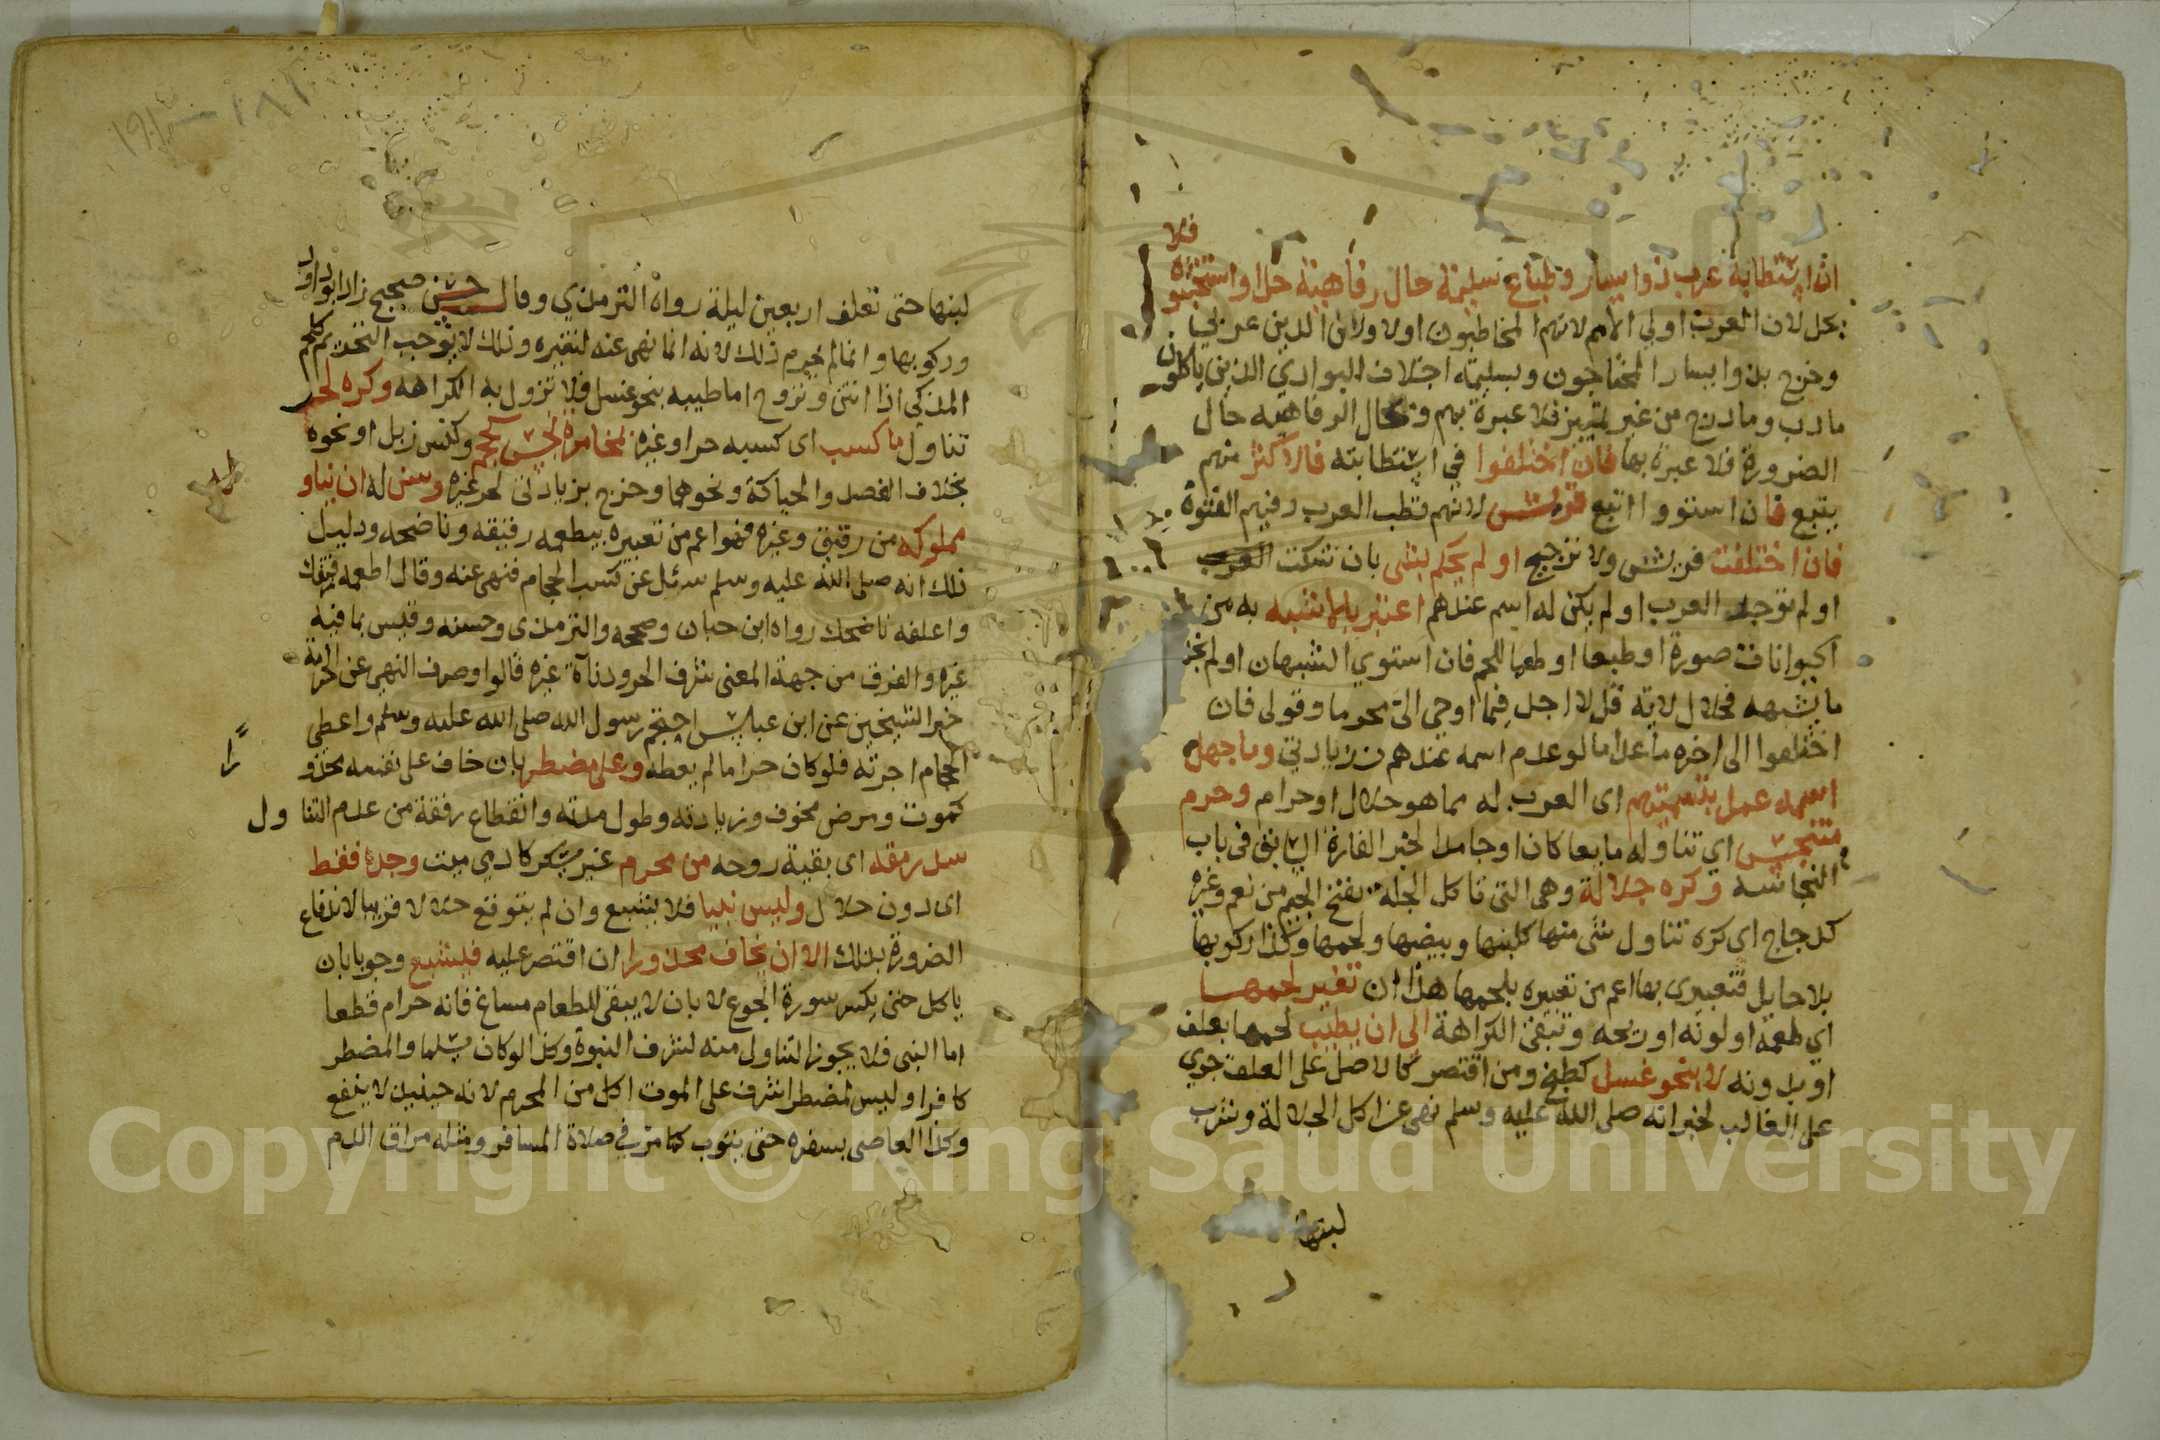 فلا
ان استطابه عرب ذوا يسار وطباع سليمة حال رفاهية حل او استخبثوه
يحل لان العرب اولى الامم لانهم المخاطبون اولا ولان الدين عربي
وخرج بذوا يسار المحتاجون وبسليمة اجلاف البوادي الذين ياكلون
ما دب وما درج من غير تمييز فلا عبرة بهم وبحال الرفاهيه حال
الضرورة فلا عبرة بها فان اختلفوا في استطابته فالاكثر منهم
يتبع فان استووا اتبع قريش لانهم قطب العرب وفيهم الفتوة
فان اختلفت قريش ولا ترجيح او لم يحكم بشى بان شكت العرب
او لم توجد العرب او لم يكن له اسم عندهم اعتبر بالاشبه به من
الحيوانات صورة او طبعا او طعما للحم فان استوي الشبهان او لم نجد
ما يشبهه فحلال لاية قل لا اجد فيما اوحي الى محرما وقولى فان
اختلفوا الى اخره ما عدا ما لو عدم اسمه عندهم من زيادتي وما جهل
اسمه عمل بتسميتهم اى العرب له مما هو حلال او حرام وحرم
متنجس اي تناوله مايعا كان او جامدا لخبر الفارة السابق في باب
النجاسه وكره جلالة وهى التى تاكل الجلة بفتح الجيم من نعم وغيره
كدجاج اى كره تناول شئ منها كلبنها وبيضها ولحمها وكذا ركوبها
بلا حايل فتعبيري بها اعم من تعبيره بلحمها هذا ان تغير لحمها
اي طعمه او لونه او ريحه وتبقى الكراهة الى ان يطيب لحمها بعلف
او بدونه لا بنحو غسل كطبخ ومن اقتصر كالاصل على العلف جري
على الغالب لخبر انه صلى الله عليه وسلم نهى عن اكل الجلالة وشرب
لبنها
لبنها حتى تعلف اربعين ليلة رواه الترمذي وقال حسن صحيح زاد ابو داود
وركوبها وانما لم يحرم ذلك لانه انما نهى عنه لتغيره وذلك لا يوجب التحريم كلحم
المذكي اذا انتن وتروح اما طيبه بنحو غسل فلا تزول به الكراهه وكره لحر
تناول ما كسب اى كسبه حر او غيره بمخامرة نجس كحجم وكنس زبل او نحوه
بخلاف الفصد والحياكة ونحوهما وخرج بزيادتى لحر غيره وسن له ان يناول
مملوكه من رقيق وغيره فهو اعم من تعبيره بيطعمه رقيقه وناضحه ودليل
ذلك انه صلى الله عليه وسلم سئل عن كسب الحجام فنهى عنه وقال اطعمه رقيقك
واعلفه ناضحك رواه ابن حبان وصححه والترمذى وحسنه وقيس بما فيه
غيره والفرق من جهة المعنى شرف الحر ودناءة غيره قالوا وصرف النهى عن الحرمة
خبر الشيخين عن ابن عباس احتجم رسول الله صلى الله عليه وسلم واعطى
الحجام اجرته فلو كان حراما لم يعطه وعلى مضطر بان خاف على نفسه محذو
را
كموت ومرض مخوف وزيادته وطول مدته وانقطاع رفقة من عدم التنا ول
سد رمقه اى بقية روحه من محرم غير مسكر كادمي ميت وجده فقط
اى دون حلال وليس نبيا فلا يشبع وان لم يتوقع حلالا قريبا لاندفاع
الضرورة بذلك الا ان يخاف محذورا ان اقتصر عليه فيشبع وجوبا بان
ياكل حتى يكسر سورة الجوع لا بان لا يبقى للطعام مساغ فانه حرام قطعا
اما النبى فلا يجوز التناول منه لشرف النبوة وكذا لو كان مسلما والمضطر
كافرا وليس لمضطر اشرف على الموت اكل من المحرم لانه حينيذ لا ينفع
وكذا العاصى بسفره حتى يتوب كما مر في صلاة المسافر ومثله مراق الدم